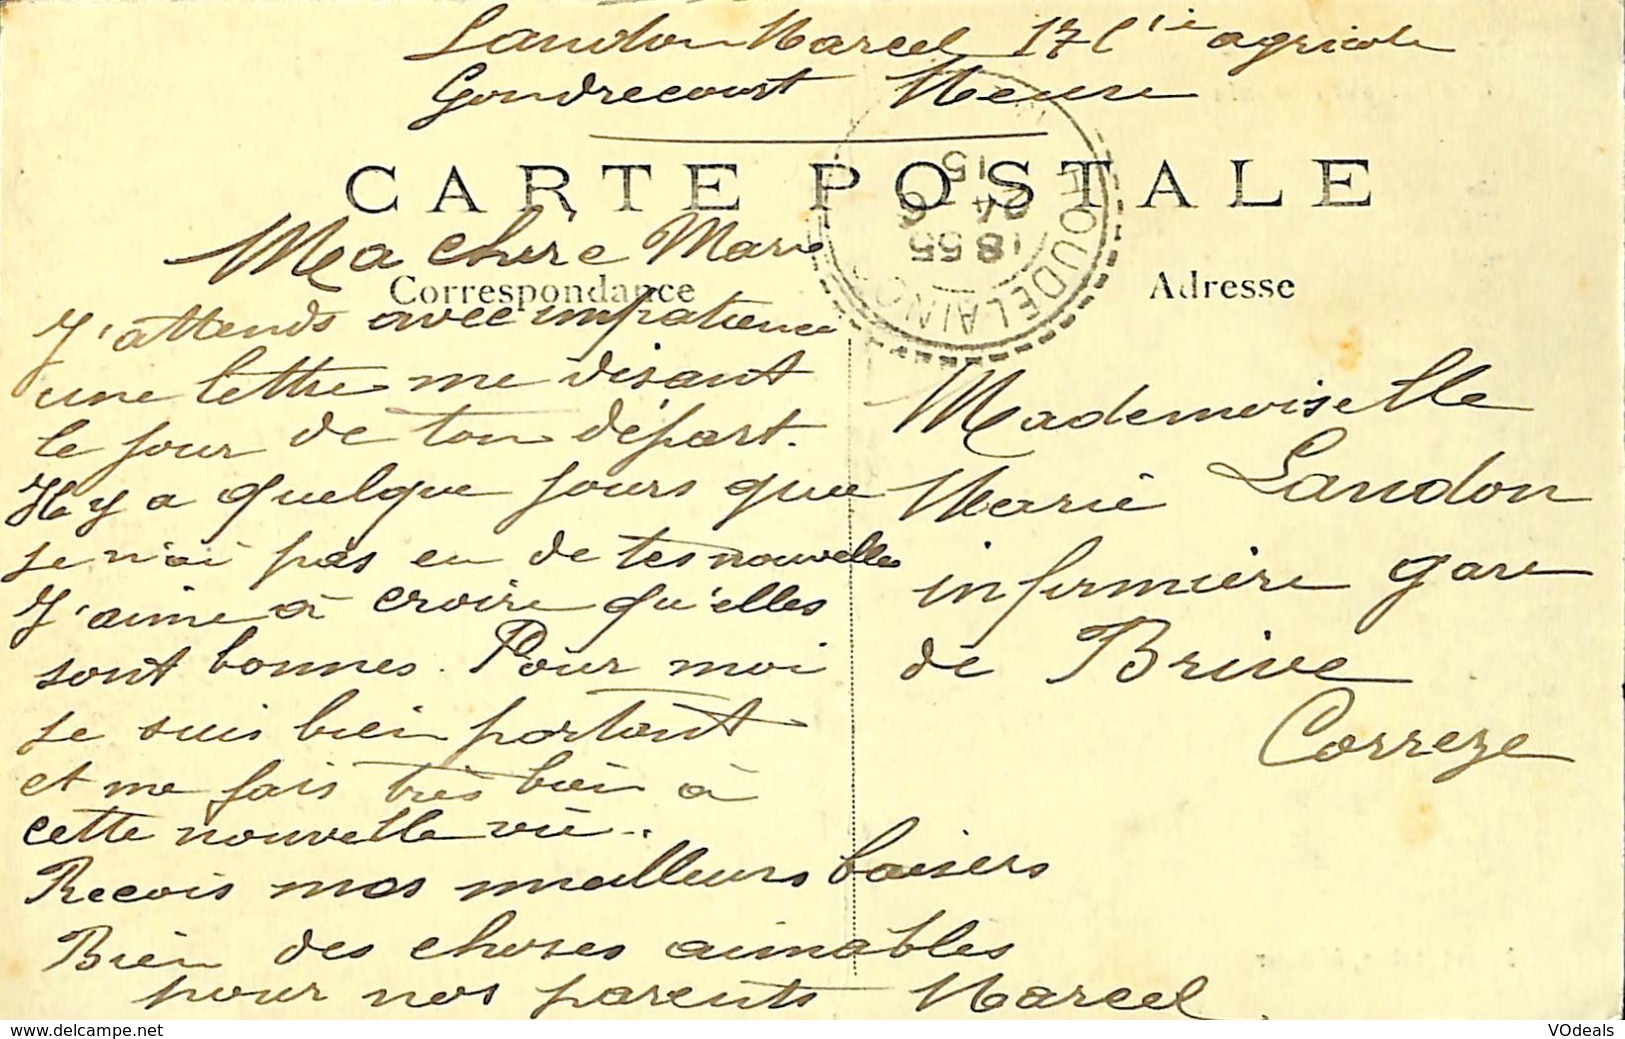 Landon Marcel 17 Cie agricole
Gondrecourt Meuse
CARTE POSTALE
HOUDELAINCOURT
18 55
24 6
15
Correspondance
Adresse
Ma chère Marie
J'attends avec impatience
une lettre me disant
le jour de ton départ.
Il y a quelque jours que
je n'ai pas eu de tes nouvelles
J'aime à croire qu'elles
sont bonnes. Pour moi
je suis bien portant
et me fais très bien à
cette nouvelle vie..
Reçois mes meilleurs baisers
Bien des choses aimables
pour nos parents Marcel
Mademoiselle
Marie Landon
infirmière gare
de Brive
Correze
www.delcampe.net
VOdeals